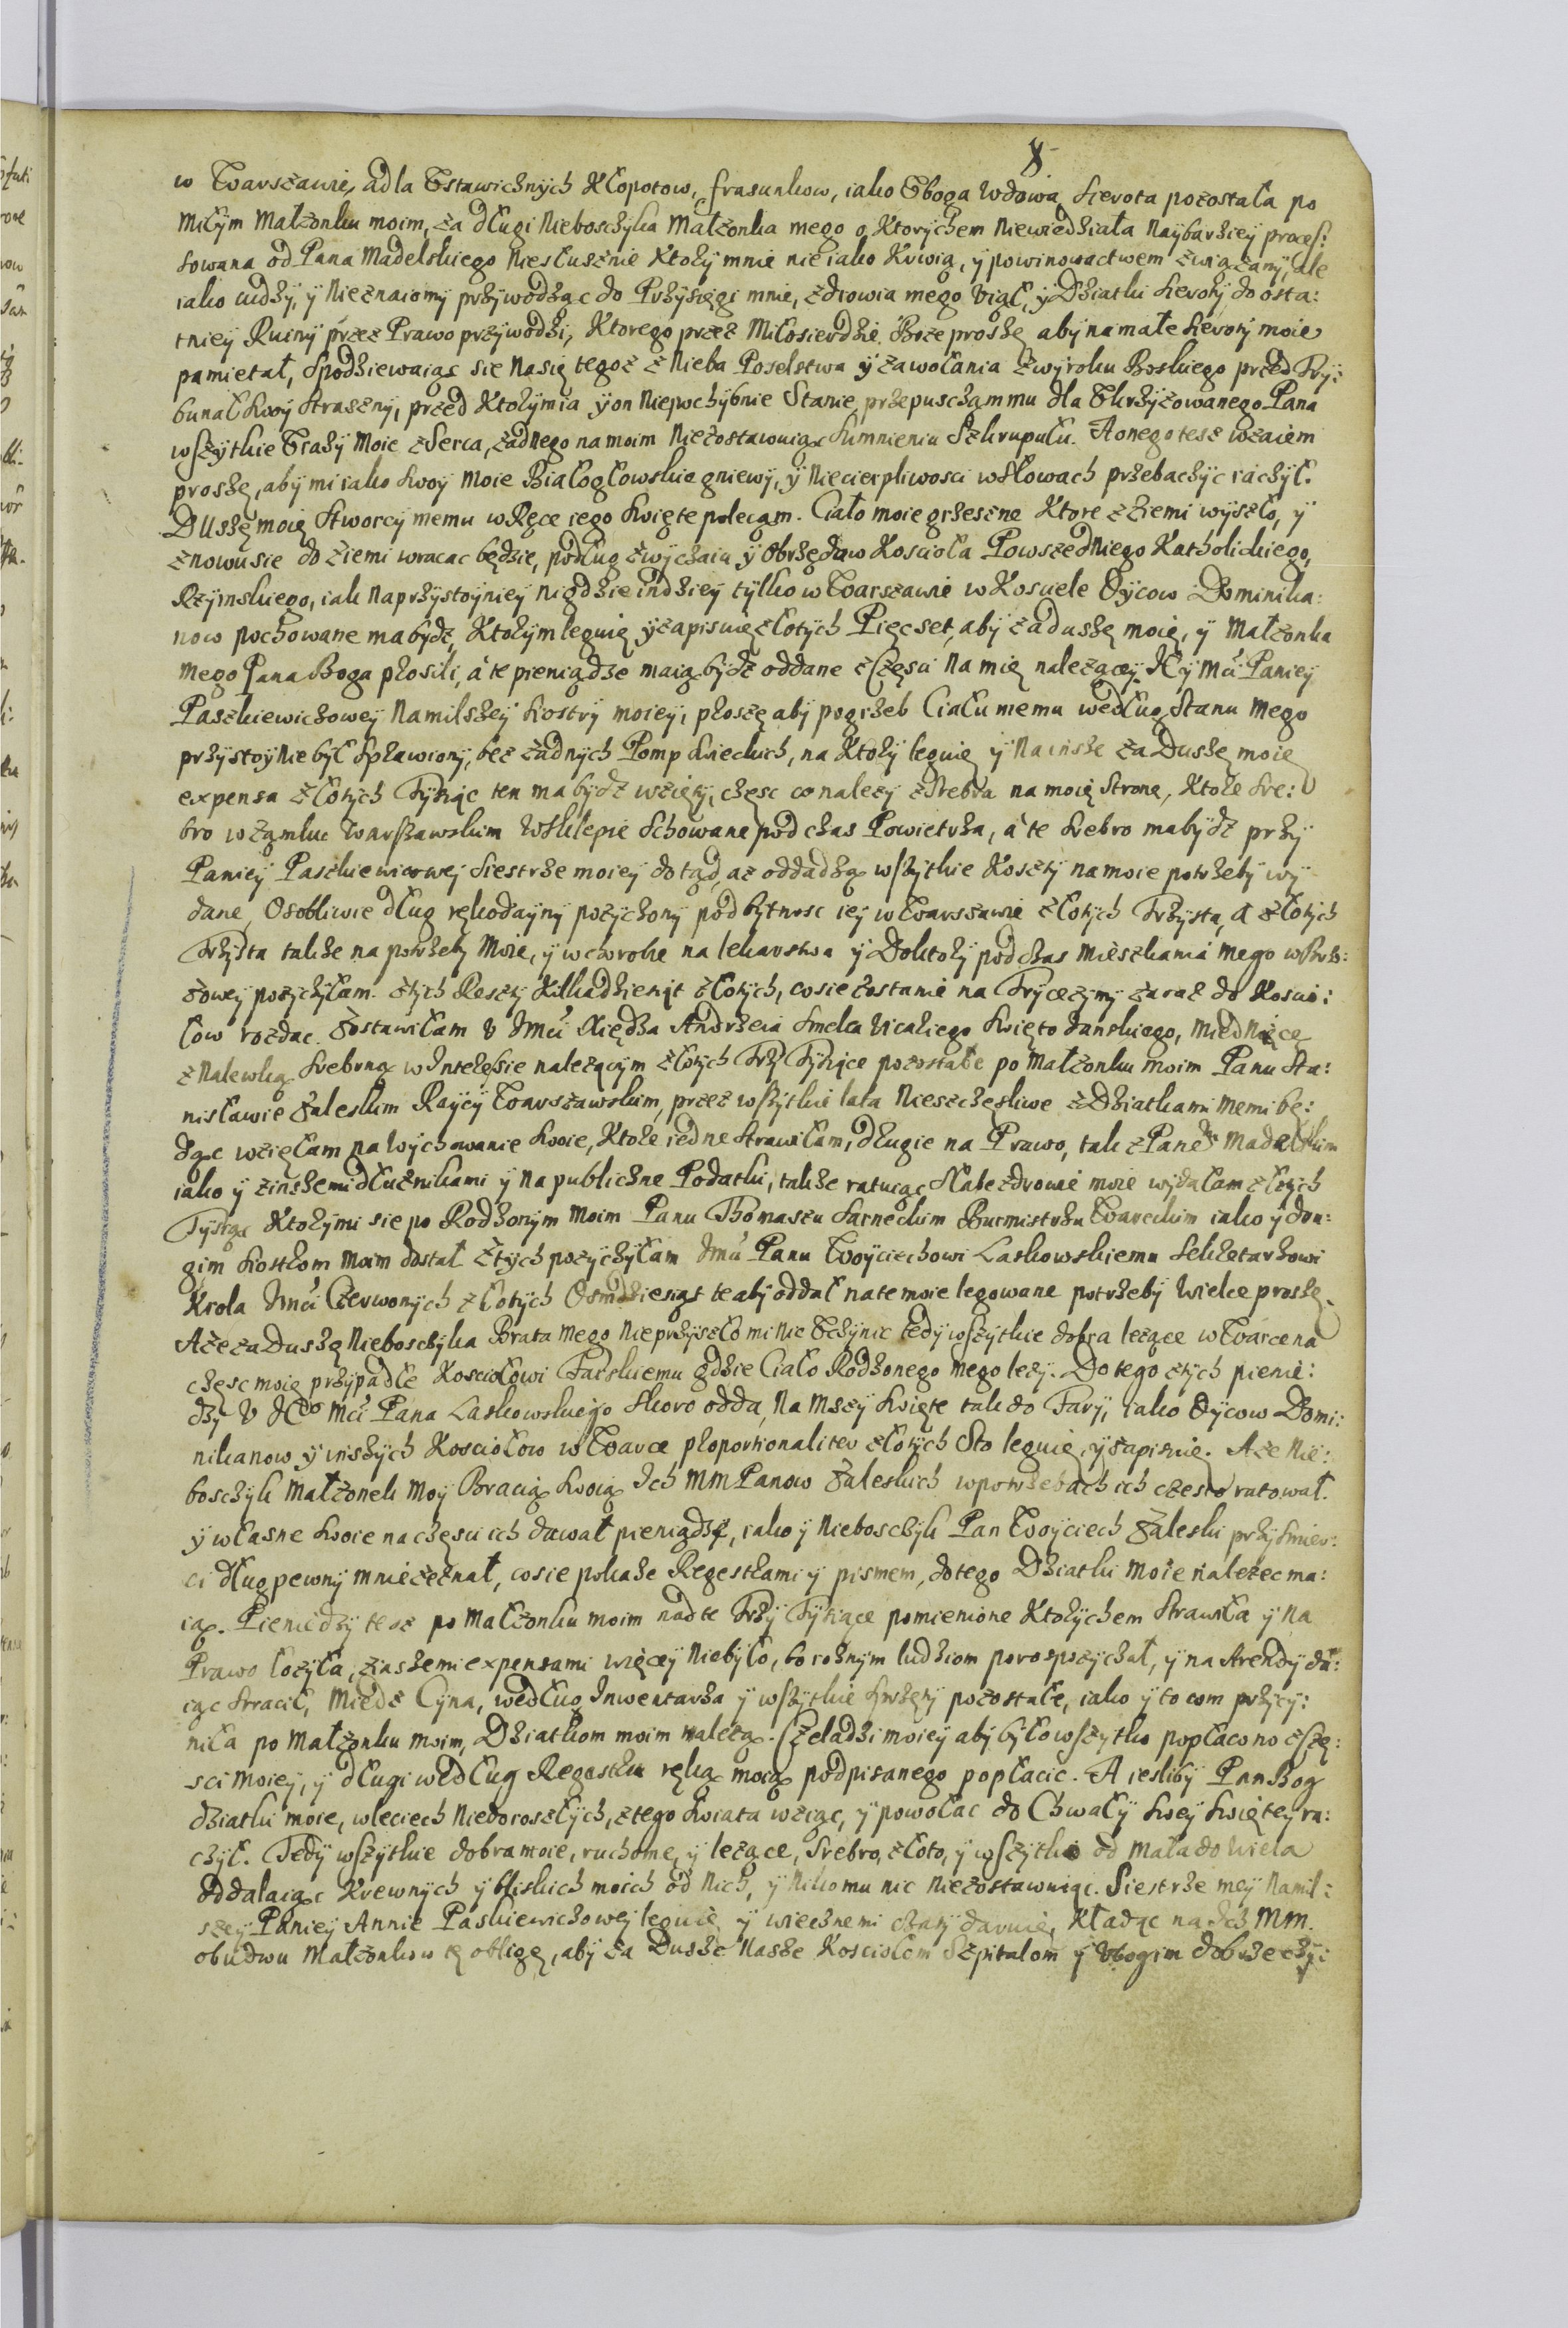 8
w Warszawie, adla Ustawicznych Kłopotow, frasunkow, iako Uboga Wdowa, Sierota pozostała po
Miłym Małzonku moim, za długi Nieboszczyka Małzonka mego o Ktorychem Niewiedziała Naybarziey proces:
sowana od Pana Madelskiego Niesłusznie Ktory mnie nie iako Krwią, y powinowactwem związany, ale
iako cudzy, y Nieznaiomy przywodząc do Przysięgi mnie, zdrowia mego Uiął, y Dziatki Sieroty do osta:
tniey Ruiny przez Prawo przywodzi, Ktorego przez Miłosierdzie Boze proszę aby na małe Sieroty moie
pamietał, Spodziewaiąc sie Nasię tegoz z Nieba Poselstwa y zawołania z wyroku Boskiego przed Try:
bunał Swoy Straszny, przed Ktorym ia y on Niepochybnie Stanie, przepuszczam mu dla Ukrzyzowanego Pana
wszytkie Urazy Moie z Serca, zadnego na moim Niezostawuiąc Sumnieniu Szkrupułu. A onego tesz wzaiem
proszę, aby mi iako Swoy Moie Białogłowskie gniewy, y Niecierpliwosci w Słowach przebaczyc raczył.
Duszę moię Stworcy memu w Ręce iego Swięte polecam. Ciało moie grzeszne Ktore z Ziemi wyszło, y
znowu sie do Ziemi wracac będzie, podług zwyczaiu y Obrzędow Koscioła Powszedniego Katholickiego,
Rzymskiego, iak Naprzystoyniey nigdzie indziey tylko w Warszawie w Kosciele Oycow Dominika:
now pochowane ma bydz, Ktorym leguię y zapisuię złotych Pięcset, aby za duszę moię, y Małzonka
Mego Pana Boga prosili, a te pieniądze maią bydz oddane z Częsci Na mię nalezącey. Jey Mci Paniey
Paszkiewiczowey Namilszey Siostry moiey, proszę aby pogrzeb Ciału memu według Stanu Mego
przystoynie był Sprawiony, bez zadnych Pomp Swieckich, na Ktory leguię y Na insze za Duszę moię
expensa złotych Tysiąc ten ma bydz wzięty, częsc co nalezy z Srebra na moię Stronę, Ktore Sre:
bro w zamku Warszawskim W Sklepie Schowane pod czas Powietrza, a te srebro ma bydz przy
Paniey Paszkiewicowej Siestrze moiey dotąd, az oddadzą wszytkie Koszty na moie potrzeby wy
dane, Osobliwie dług rękodayny pozyczony pod bytnosc iey w Warszawie złotych Trzysta, A złotych
Trzysta takze na potrzeby Moie, y w chorobie na lekarstwa y Doktory pod czas Mieszkania Mego
zowey pozyczyłam. ztych Reszty Kilkadziesiąt złotych, co sie zostanie na Trycezymy zaraz do Koscio:
łow rozdac. Zostawiłam U Jmci Xiędza Andrzeia Smelca Vicariego Swięto Janskiego, Miednicę
z Nalewką Srebrną w Interessie nalezącym złotych Trzy Tysiące pozostałe po Małzonku moim Panu Sta:
nisławie Zaleskim Raycy Warszawskim, przez wszytkie lata Nieszczęsliwe z Dziatkami Memi bę:
dąc wzięłam na Wychowanie Swoie, Ktore iedne Strawiłam, drugie na Prawo, tak z Panem Madelskim
iako y z inszemi dłuznikami y na publiczne Podatki, takze ratuiąc Słabe zdrowie moie wydałam złotych
Tysiąc Ktorymi sie po Rodzonym Moim Panu Thomaszu Sarneckim Burmistrzu Wareckim iako y dru:
gim Siostrom Moim dostał. Z tych pozyczyłam Jmci Panu Woyciechowi Laskowskiemu Sekretarzowi
Krola Jmci Czerwonych złotych Osmdziesiąt te aby oddał na te moie legowane potrzeby Wielce proszę.
A ze za Duszę Nieboszczyka Brata Mego Nieprzyszło mi Nic Uczynic tedy wszytkie dobra lezące w Warce na
częsc moię przypadłe Kosciołowi Farskiemu gdzie Ciało Rodzonego Mego lezy. Do tego ztych pienie:
dzy U Jego Mci Pana Laskowskiego Skoro odda, Na Mszy Swięte tak do Fary, iako Oycow Domi:
nikanow y inszych Kosciołow w Warce proportionaliter złotych Sto leguię, y zapisuię. A ze Nie:
boszczyk Małzonek Moy Bracią Swoią Ich MM Panow Zaleskich w potrzebach ich często ratował.
y własne Swoie na częsci ich dawał pieniądze, iako y Nieboszczyk Pan Woyciech Zaleski przy smier:
ci dług pewny mnie zeznał, co sie pokaze Regestrami y pismem, do tego Dziatki Moie nalezec ma:
ią. Pieniędzy tesz po Małzonku moim nad te Trzy Tysiące pomienione Ktorychem Strawiła y Na
Prawo łozyła, z inszemi expensami więcey Niebyło, bo roznym ludziom porospozyczał, y na Arendy da:
iąc Stracił, Miedz Cyna, według Inwentarza y wszytkie Sprzęty pozostałe, iako y to com przyczy:
niła po Małzonku moim, Dziatkom moim nalezą. Czeladzi moiey aby było wszytko popłacono z Czę:
sci moiey, y długi według Regestru ręką moią podpisanego popłacic. A iesliby Pan Bog
dziatki moie, w leciech Niedoroszłych, z tego Swiata wziąc, y powołac do Chwały Swey Swiętey ra:
czył. Tedy wszytkie dobra moie, ruchome, y lezące, Srebro, złoto, y wszytko od Mała do Wiela
Oddalaiąc Krewnych y bliskich moich od Nich, y Nikomu nic Niezostawuiąc. Siestrze mey Namil:
szey Paniey Annie Paskiewiczowey leguię y wiecznemi czasy daruię, Kładąc na Ich MM.
obudwu Małzonkow tę obligę, aby za Dusze Nasze Kosciołom Szpitalom y Ubogim dobrze czy: